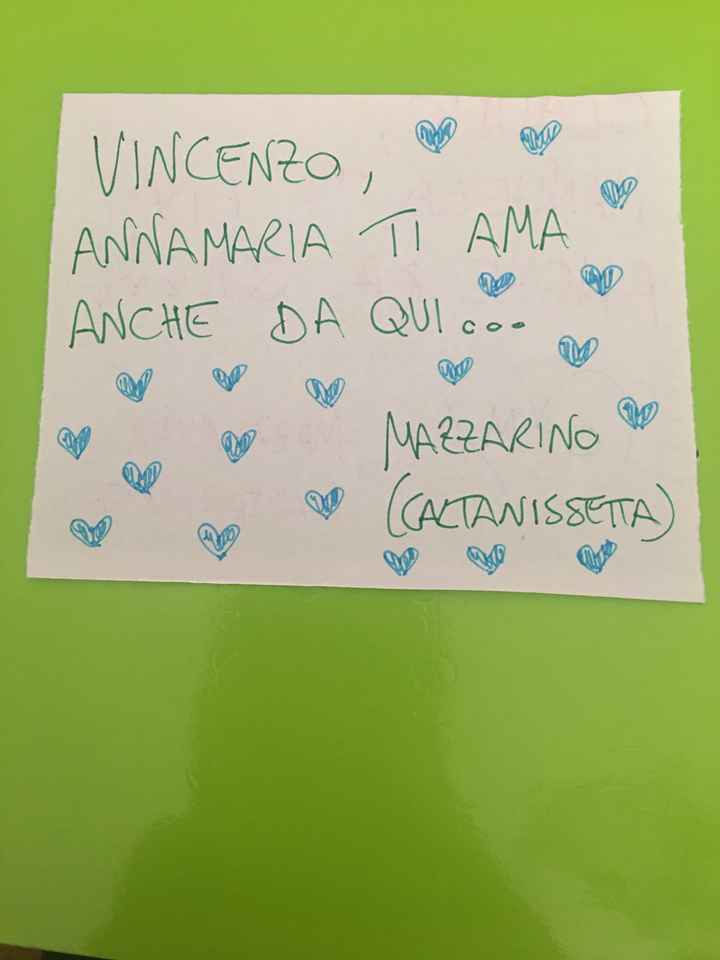 VINCENZO,
ANNAMARIA TI AMA
ANCHE DA QUI...
MAZZARINO
(CALTANISSETTA)